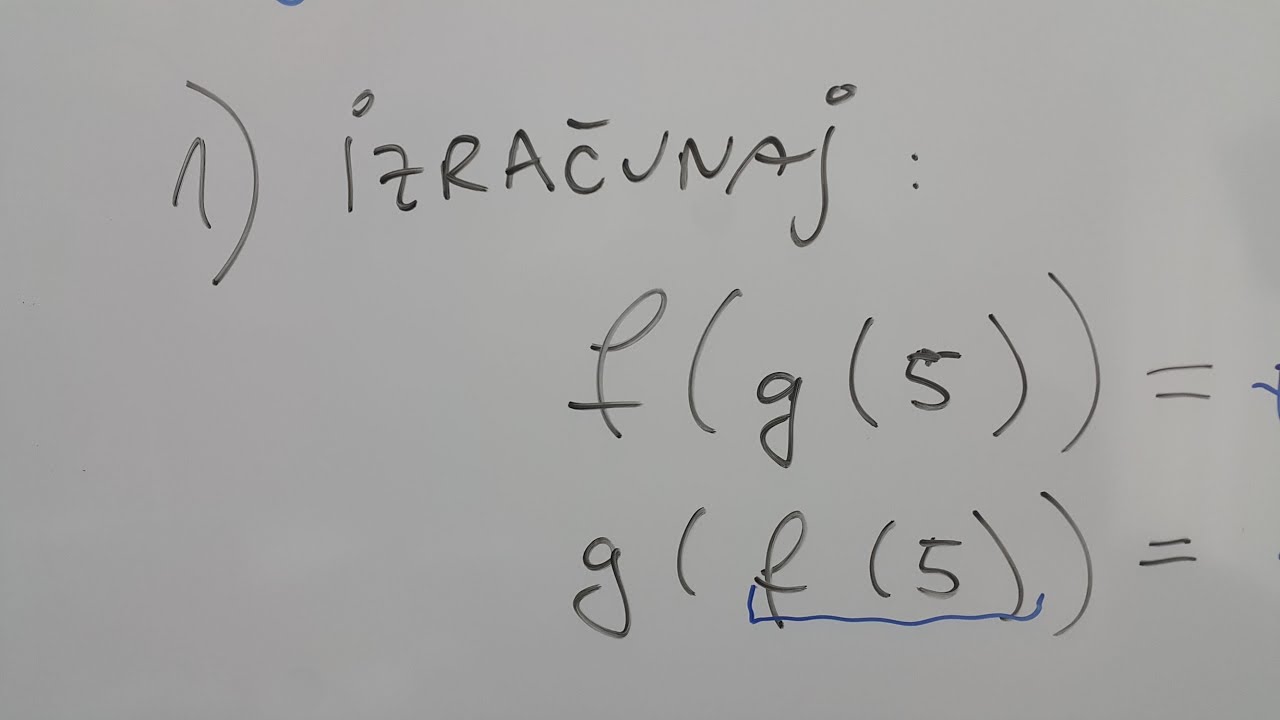 1) iZRAČUNAj :
f(g(5)) =
g(f(5)) =